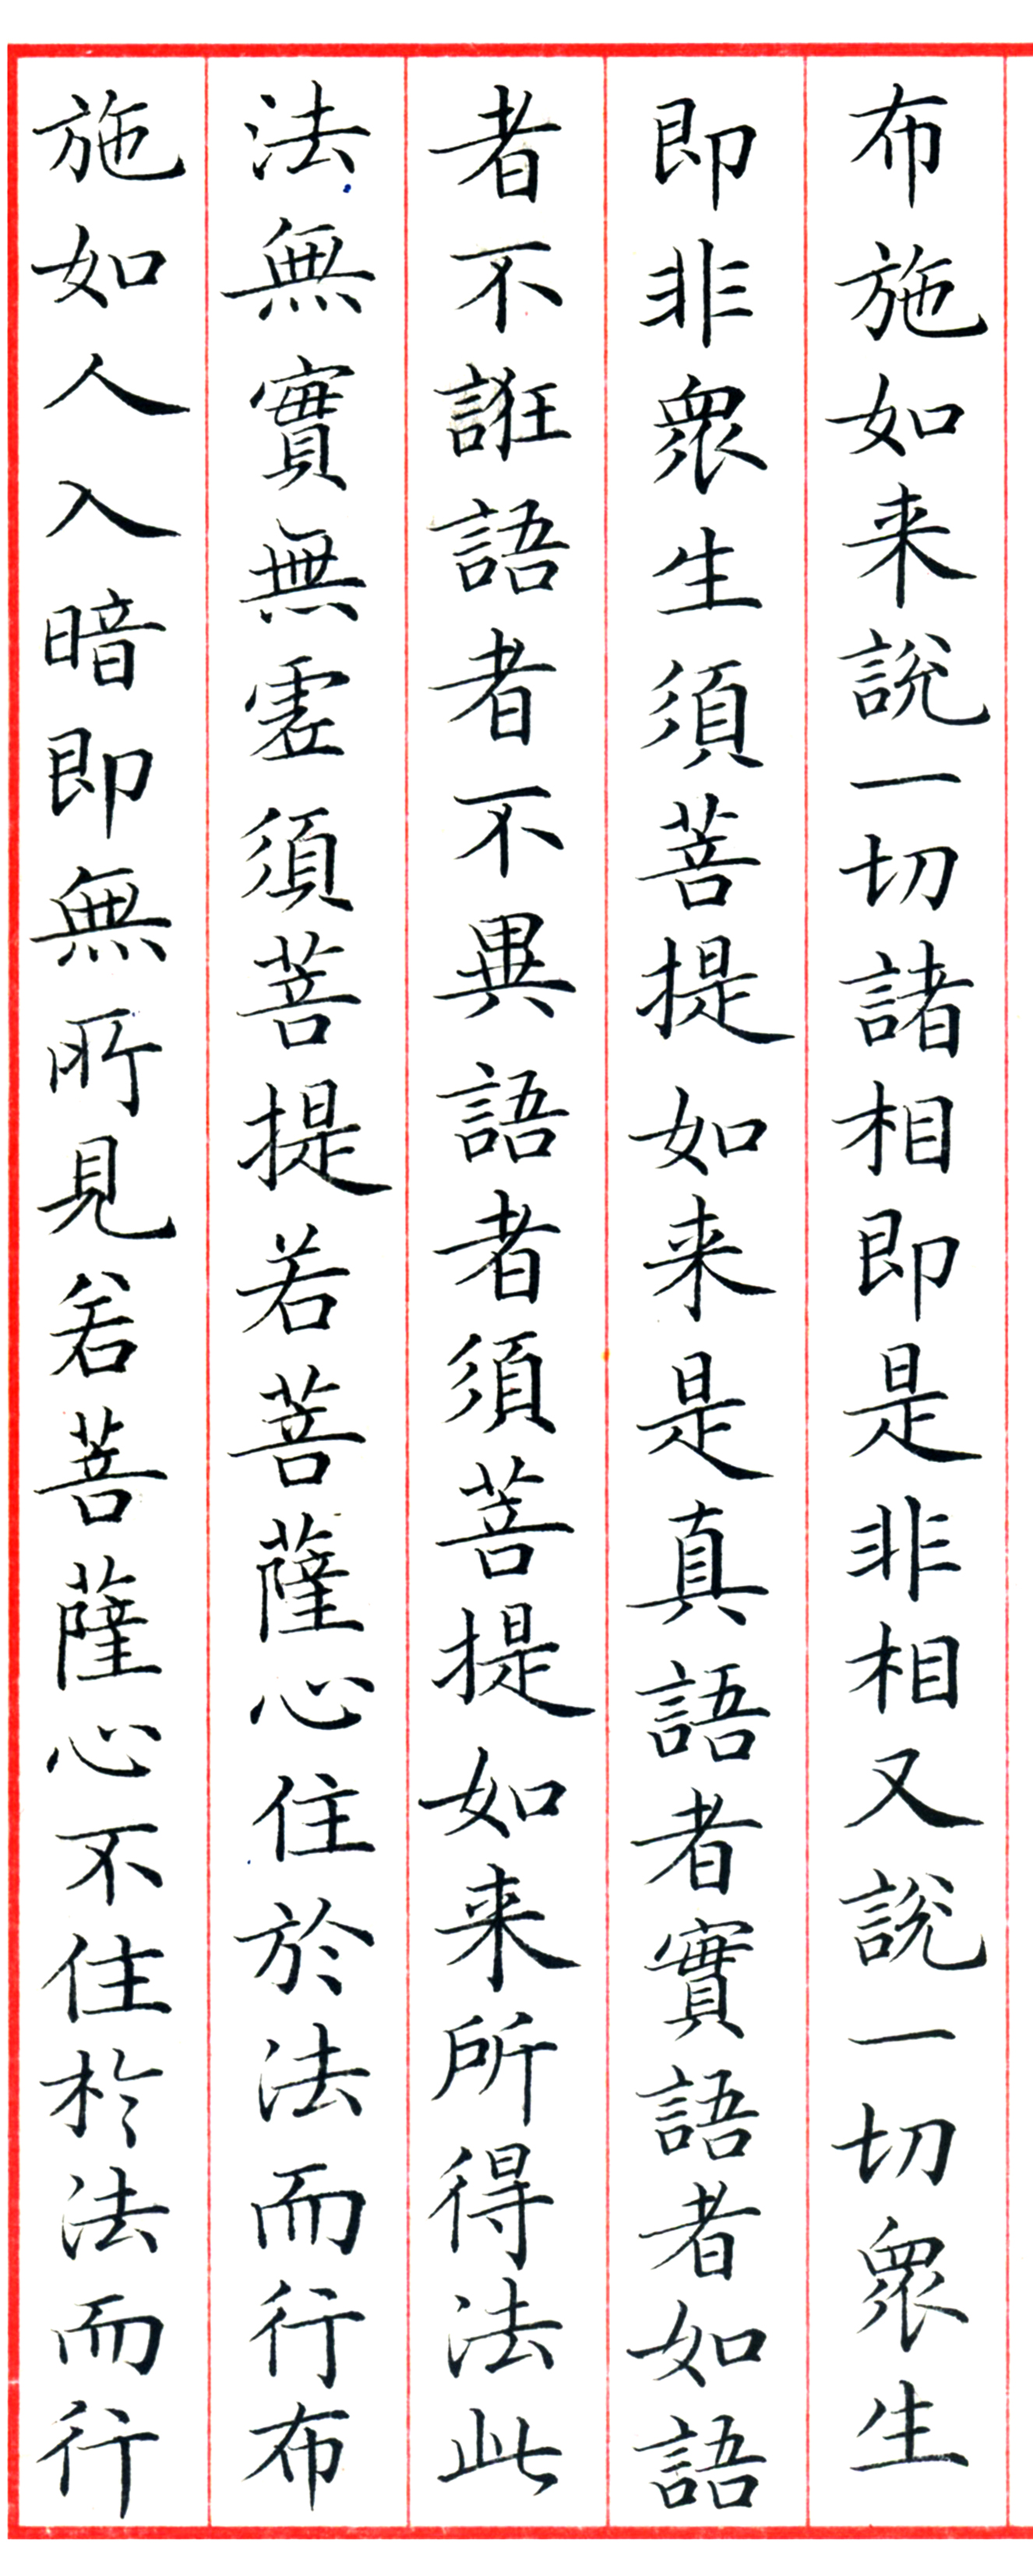 布施如来説一切諸相即是非相又説一切衆生
即非衆生須菩提如来是真語者實語者如語
者不誑語者不異語者須菩提如来所得法此
法無實無虛須菩提若菩薩心住於法而行布
施如人入暗即無所見若菩薩心不住於法而行